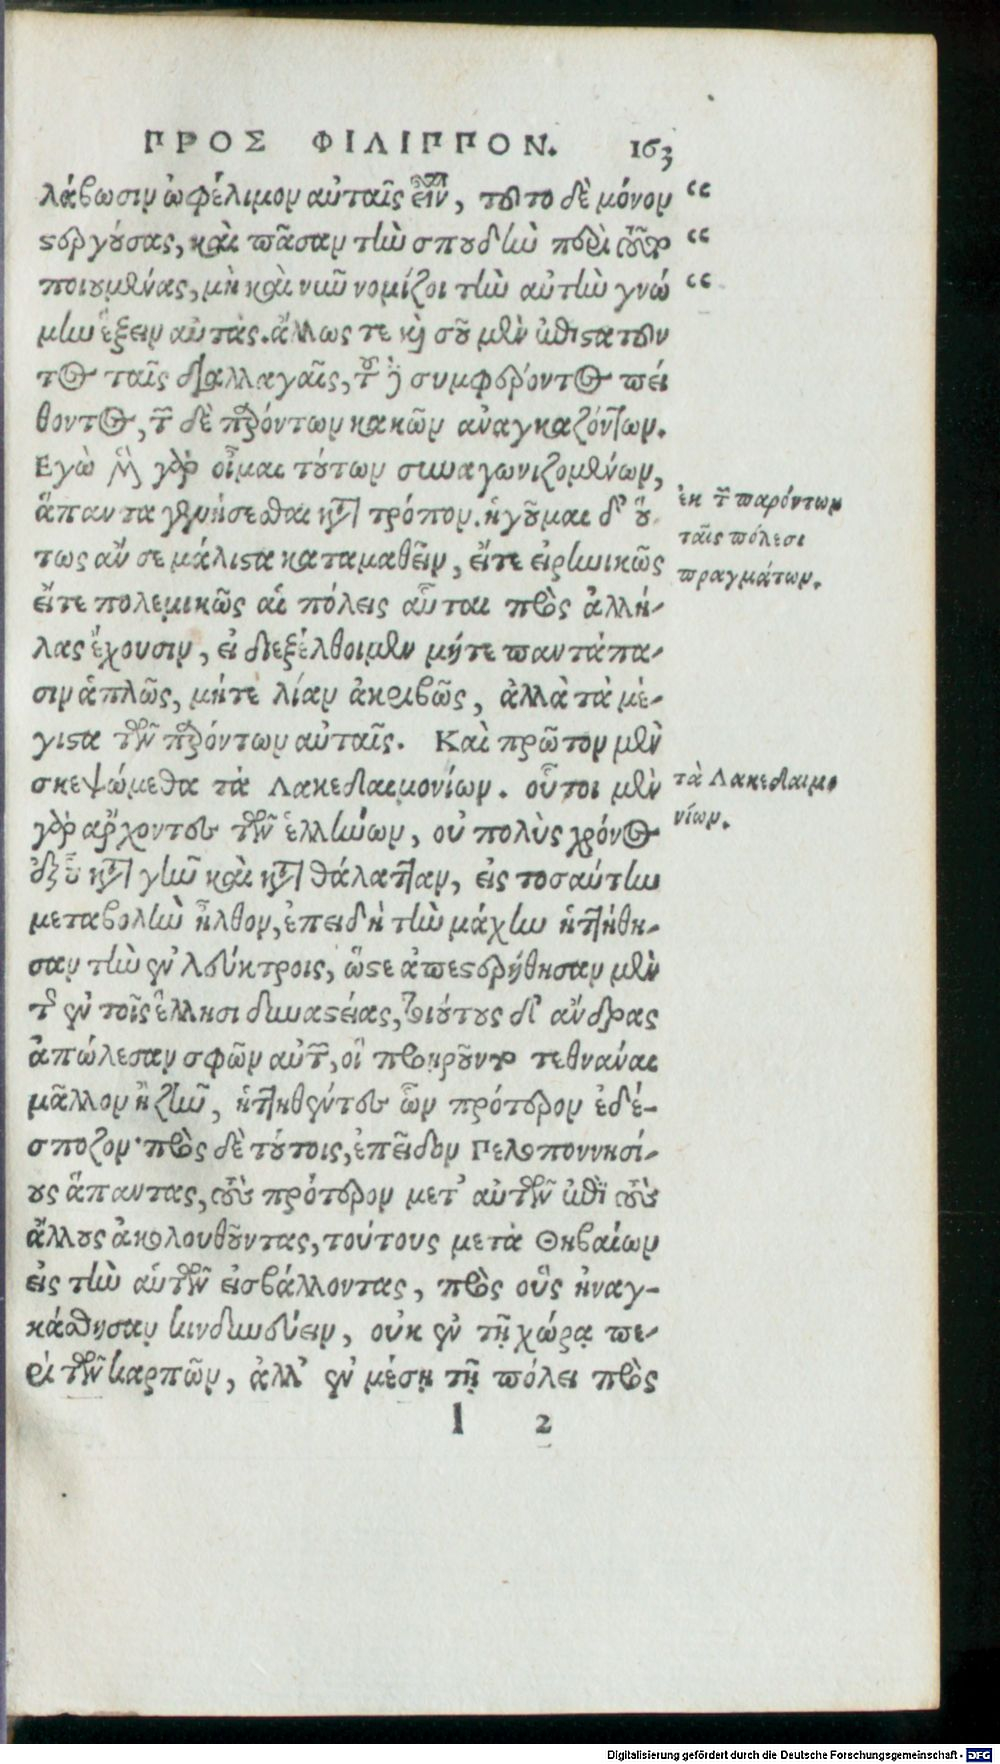 ΠΡΟΣ ΦΙΛΙΠΠΟΝ. 163
λάβωσιν ὠφέλιμον αὐταῖς εἶναι, τοῦτο δὲ μόνον “
στεργούσας, καὶ πᾶσαν τὴν σπουδὴν περὶ τούτου “
ποιουμένας, μὴ καὶ νῦν νομίζοι τὴν αὐτὴν γνώ “
μην ἕξειν αὐτάς. ἄλλως τε καὶ σοῦ μὲν ἐπιστατοῦν
τος ταῖς διαλλαγαῖς, τοῦ δὲ συμφέροντος πεί
θοντος, τῶν δὲ παρόντων κακῶν ἀναγκαζόντων.
Εγὼ μὲν γὰρ οἶμαι τούτων συναγωνιζομένων,
ἅπαντα γενήσεσθαι κατὰ τρόπον. ἡγοῦμαι δ' οὕ
τως ἄν σε μάλιστα καταμαθεῖν, εἴτε εἰρηνικῶς
εἴτε πολεμικῶς αἱ πόλεις αὗται πρὸς ἀλλή-
λας ἔχουσιν, εἰ διεξέλθοιμεν μήτε παντάπα-
σιν ἁπλῶς, μήτε λίαν ἀκριβῶς, ἀλλὰ τὰ μέ-
γιστα τῶν παρόντων αὐταῖς. Καὶ πρῶτον μὲν
σκεψώμεθα τὰ Λακεδαιμονίων. οὗτοι μὲν
γὰρ ἄρχοντες τῶν ἑλλήνων, οὐ πολὺς χρόνος
ἐξ οὗ κατὰ γῆν καὶ κατὰ θάλατταν, εἰς τοσαύτην
μεταβολὴν ἦλθον, ἐπειδὴ τὴν μάχην ἡττήθη-
σαν τὴν ἐν λεύκτροις, ὥστε ἀπεστερήθησαν μὲν
τῆς ἐν τοῖς ἕλλησι δυναστείας, τοιούτους δ' ἄνδρας
ἀπώλεσαν σφῶν αὐτῶν, οἳ προῃροῦντο τεθνάναι
μᾶλλον ἢ ζῆν, ἡττηθέντες ὧν πρότερον ἐδέ-
σποζον· πρὸς δὲ τούτοις, ἐπεῖδον Πελοποννησί-
ους ἅπαντας, τοὺς πρότερον μετ' αὐτῶν ἐπὶ τοὺς
ἄλλους ἀκολουθοῦντας, τούτους μετὰ Θηβαίων
εἰς τὴν αὑτῶν εἰσβάλλοντας, πρὸς οὓς ἠναγ-
κάσθησαν κινδυνεύειν, οὐκ ἐν τῇ χώρᾳ πε-
ρὶ τῶν καρπῶν, ἀλλ' ἐν μέσῃ τῇ πόλει πρὸς
l 2
ἐκ τῶν παρόντων
ταῖς πόλεσι
πραγμάτων.
τὰ Λακεδαιμο
νίων.
Digitalisierung gefördert durch die Deutsche Forschungsgemeinschaft - DFG